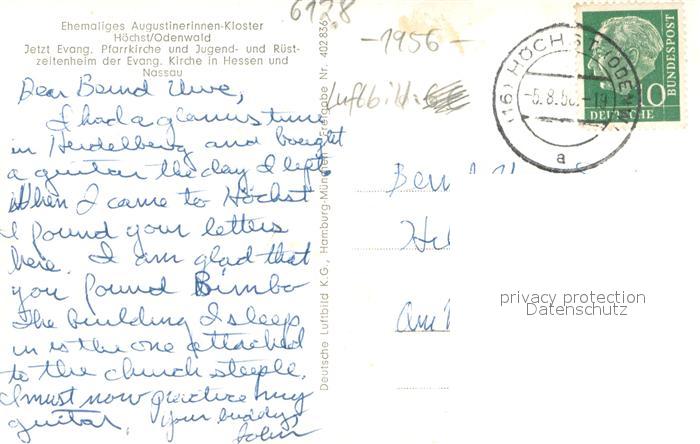 Ehemaliges Augustinerinnen-Kloster
Höchst/Odenwald
Jetzt Evang. Pfarrkirche und Jugend- und Rüst-
zeitenheim der Evang. Kirche in Hessen und
Nassau
6128
-1956-
Luftbild
Dear Bernd Uwe,
I had a glamorous time
in Heidelberg and bought
a guitar the day I left.
When I came to Höchst
I found your letters
here. I am glad that
you found Bimbo
The building I sleep
in is the one attached
to the church steeple.
I must now practice my
guitar. Your buddy,
John
Deutsche Luftbild K.G., Hamburg-München Freigabe Nr. 402856
(16) HÖCHST (ODENW
-5.8.56.-19
a
10
DEUTSCHE
BUNDESPOST
privacy protection
Datenschutz